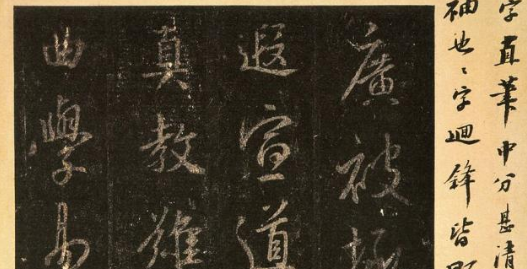 字直筆中分甚清
袖也〻字迴鋒皆
廣被拯
遐宣導
真教難
曲學易